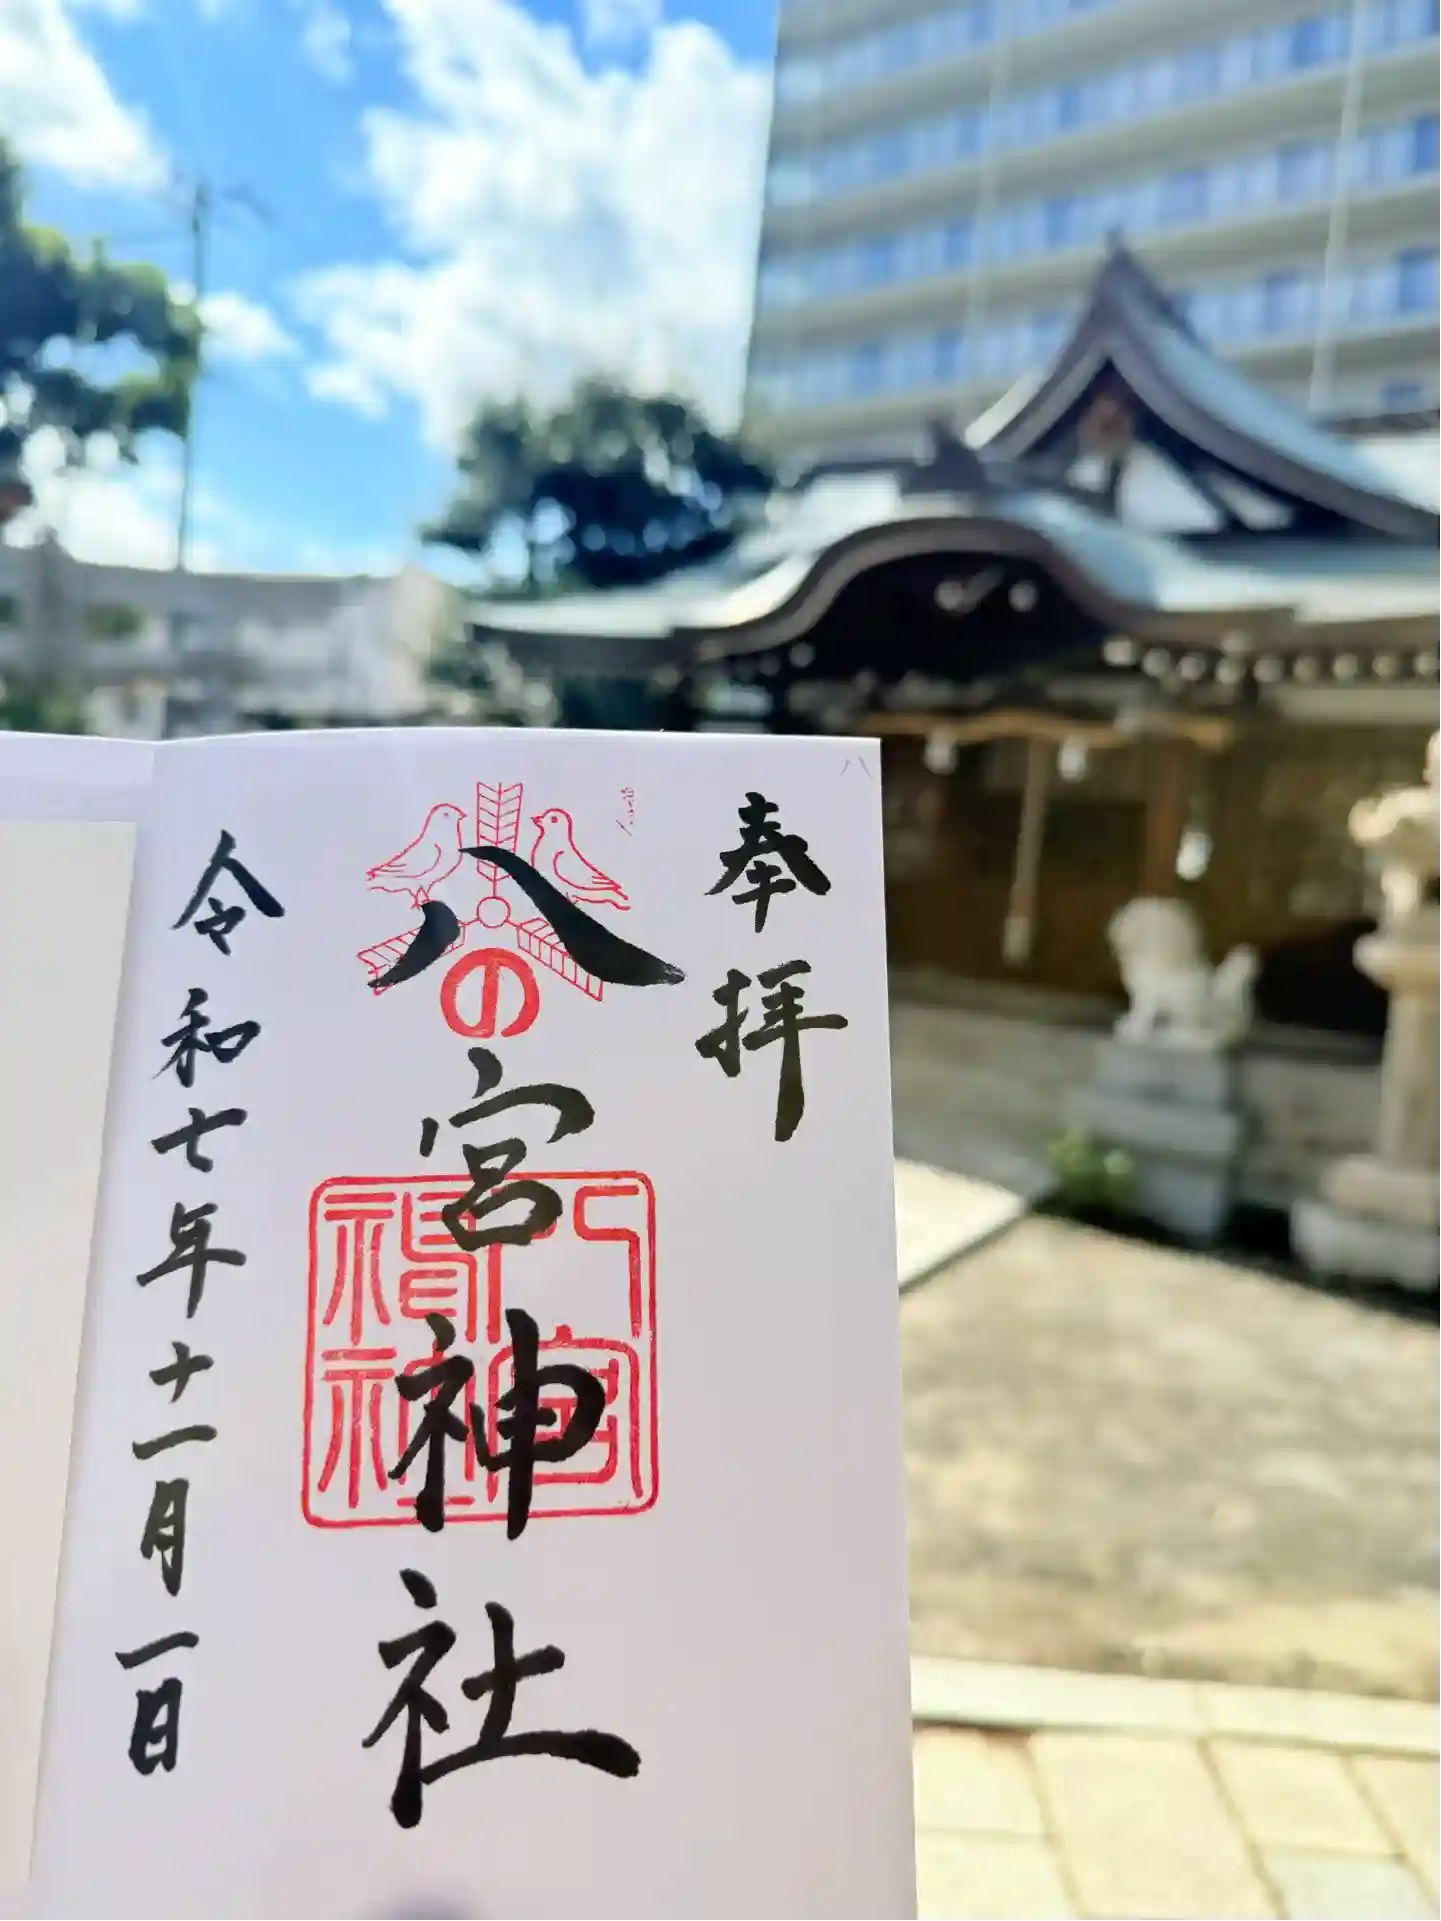 八
奉拝
八の宮神社
八宮神社
令和七年十一月一日